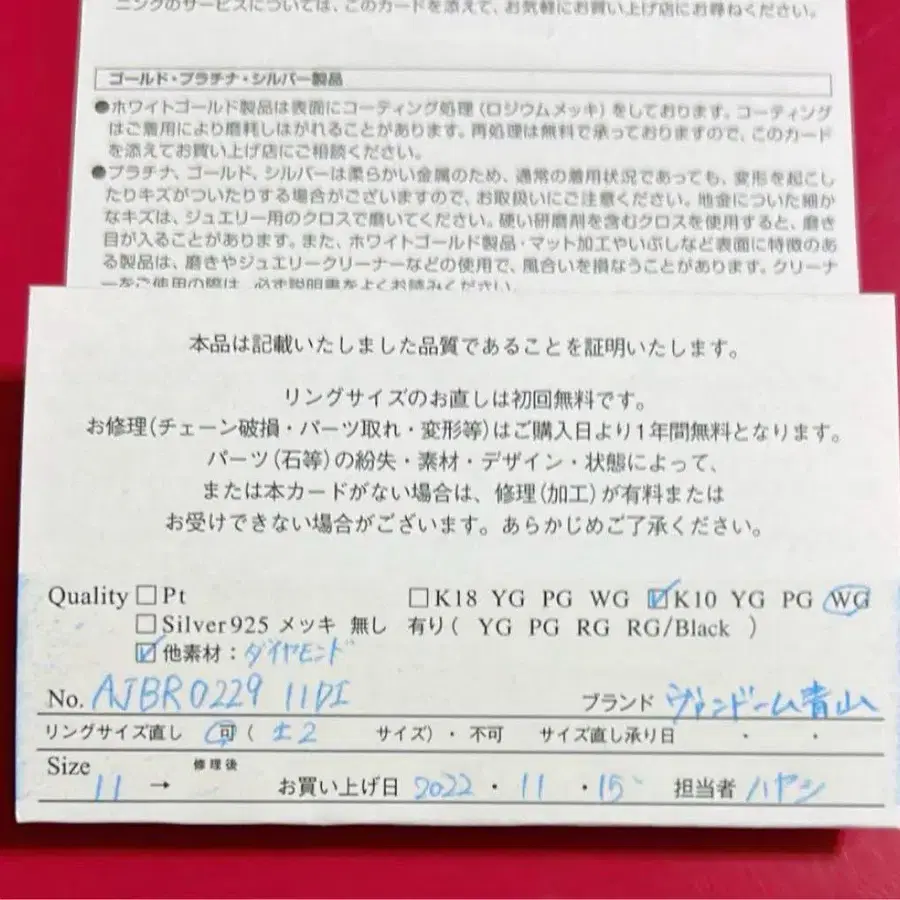 ニングのサービスについては、このカードを添えて、お気軽にお買い上げ店にお尋ねください。
ゴールド・プラチナ・シルバー製品
●ホワイトゴールド製品は表面にコーティング処理（ロジウムメッキ）をしております。コーティング
はご着用により磨耗しはがれることがあります。再処理は無料で承っておりますので、このカード
を添えてお買い上げ店にご相談ください。
●プラチナ、ゴールド、シルバーは柔らかい金属のため、通常の着用状況であっても、変形を起こし
たりキズがついたりする場合がございますので、お取扱いにご注意ください。地金についた細か
なキズは、ジュエリー用のクロスで磨いてください。硬い研磨剤を含むクロスを使用すると、磨き
目が入ることがあります。また、ホワイトゴールド製品・マット加工やいぶしなど表面に特徴のあ
る製品は、磨きやジュエリークリーナーなどの使用で、風合いを損なうことがあります。クリーナ
ーをご使用の際は、必ず説明書をよくお読みください。
本品は記載いたしました品質であることを証明いたします。
リングサイズのお直しは初回無料です。
お修理（チェーン破損・パーツ取れ・変形等）はご購入日より1年間無料となります。
パーツ（石等）の紛失・素材・デザイン・状態によって、
または本カードがない場合は、修理（加工）が有料または
お受けできない場合がございます。あらかじめご了承ください。
Quality □Pt □K18 YG PG WG ☑K10 YG PG WG
□Silver925 メッキ 無し 有り（ YG PG RG RG/Black ）
☑他素材：ダイヤモンド
No. AJBR0229 11DI ブランド ヴァンドーム青山
リングサイズ直し 可（ ±2 サイズ）・不可 サイズ直し承り日 ・ ・
Size 11 → 修理後 お買い上げ日 2022・11・15 担当者 ハヤシ